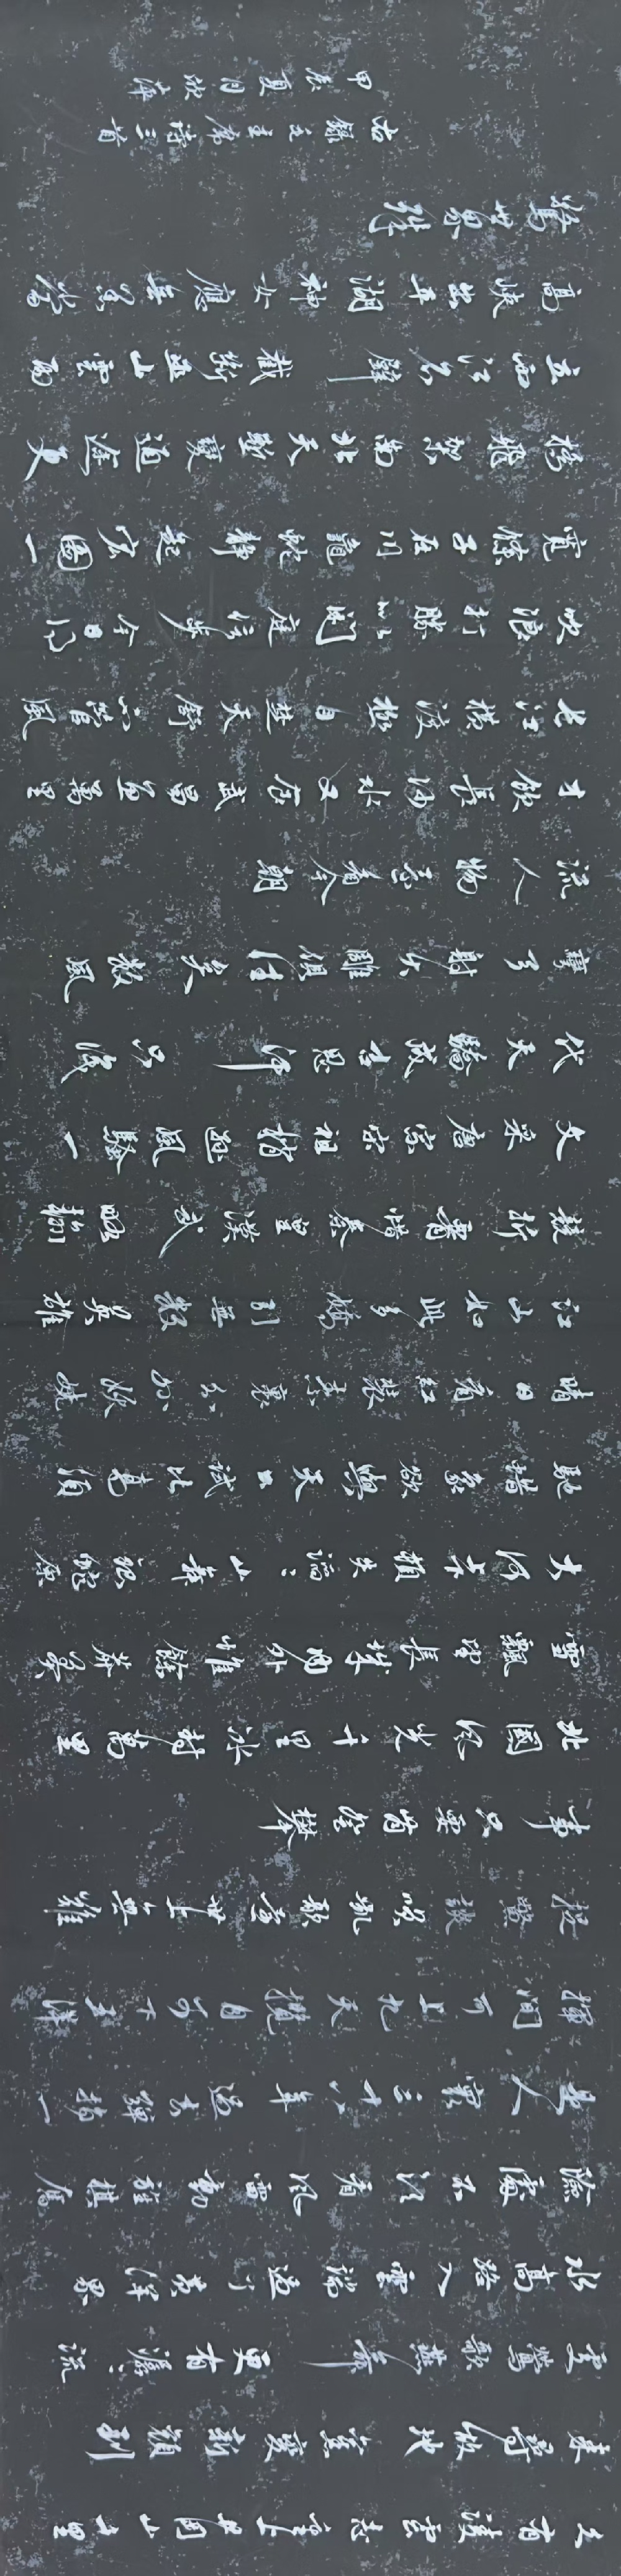 久有凌雲志重上井岡山千里
來尋故地舊貌變新顏到
處鶯歌燕舞更有潺潺流
水高路入雲端過了黃洋界
險處不須看風雷動旌旗奮
是人寰三十八年過去彈指一
揮間可上九天攬月可下五洋
捉鱉談笑凱歌還世上無難
事只要肯登攀
北國風光千里冰封萬里
雪飄望長城內外惟餘莽莽
大河上下頓失滔滔山舞銀蛇原
馳蠟象欲與天公試比高須
晴日看紅裝素裹分外妖嬈
江山如此多嬌引無數英雄
競折腰惜秦皇漢武略輸
文采唐宗宋祖稍遜風騷一
代天驕成吉思汗只識
彎弓射大雕俱往矣數風
流人物還看今朝
才飲長沙水又食武昌魚萬里
長江橫渡極目楚天舒不管風
吹浪打勝似閒庭信步今日得
寬餘子在川龜蛇靜起宏圖一
橋飛架南北天塹變通途更
立西江石壁截斷巫山雲雨
高峽出平湖神女應無恙當
驚世界殊
右錄毛主席詩三首
甲辰夏月欣萍